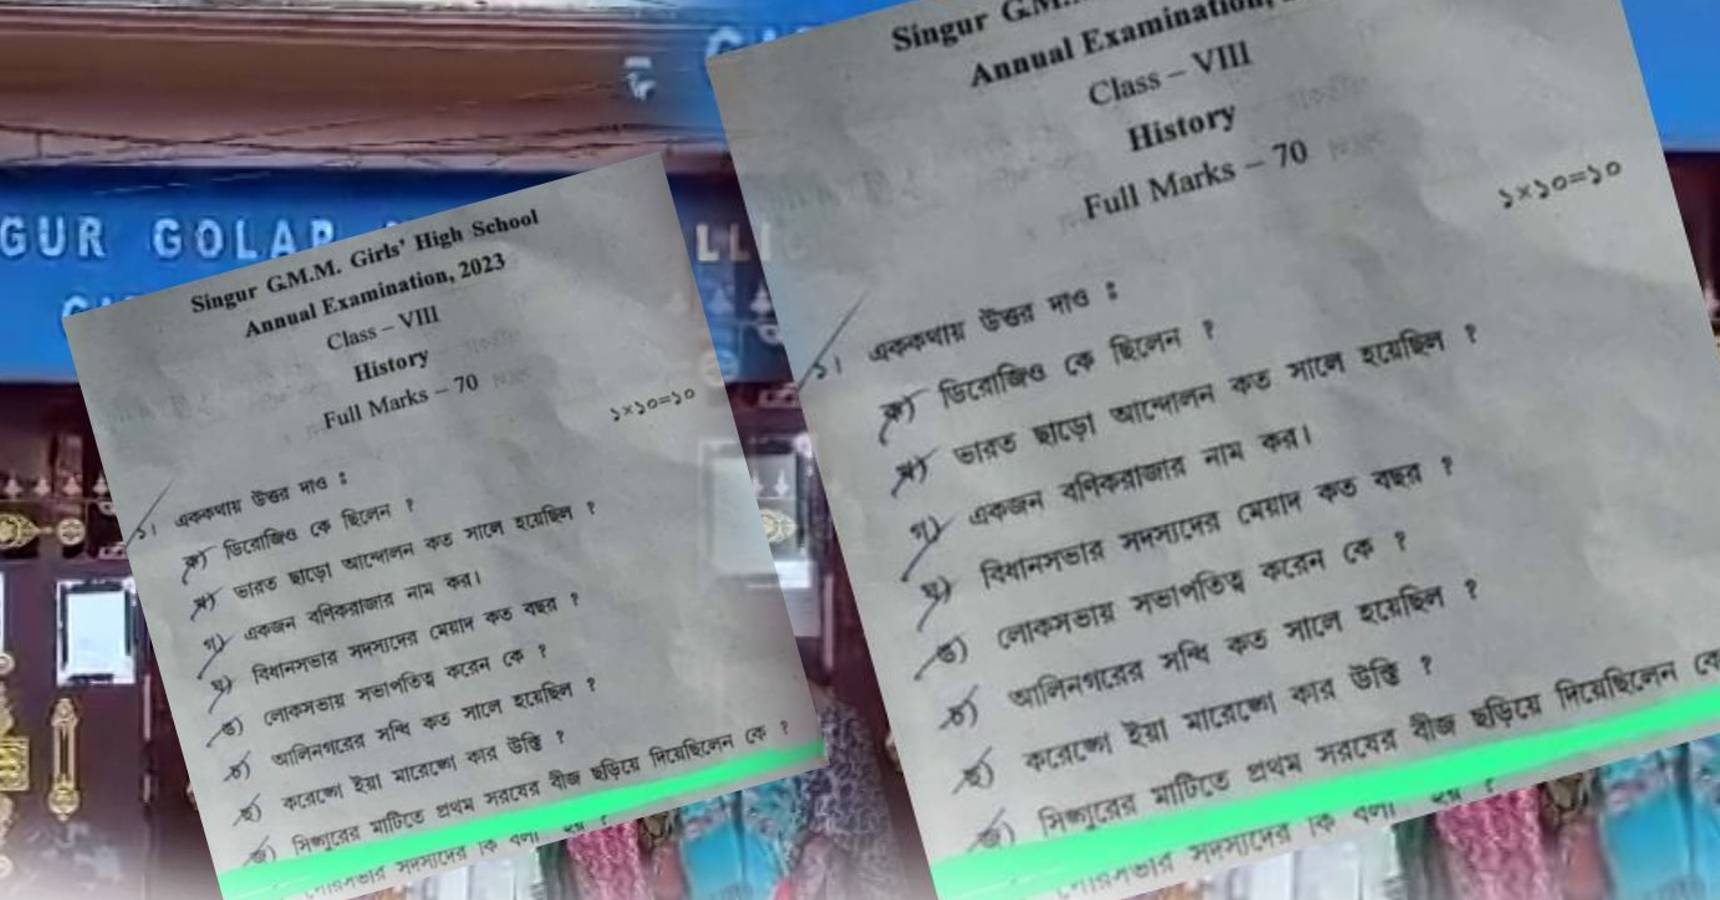 GUR GOLAP
LLIC
Singur G.M.M. Girls' High School
Annual Examination, 2023
Class – VIII
History
Full Marks – 70
১×১০=১০
১। এককথায় উত্তর দাও :
ক) ডিরোজিও কে ছিলেন ?
খ) ভারত ছাড়ো আন্দোলন কত সালে হয়েছিল ?
গ) একজন বণিকরাজার নাম কর।
ঘ) বিধানসভার সদস্যদের মেয়াদ কত বছর ?
ঙ) লোকসভায় সভাপতিত্ব করেন কে ?
চ) আলিনগরের সন্ধি কত সালে হয়েছিল ?
ছ) করেঙ্গে ইয়া মারেঙ্গে কার উক্তি ?
জ) সিঙ্গুরের মাটিতে প্রথম সরষের বীজ ছড়িয়ে দিয়েছিলেন কে ?
পৌরসভার সদস্যদের কি বলা হয় ?
Singur G.M.
Annual Examination,
Class – VIII
History
Full Marks – 70
১×১০=১০
১। এককথায় উত্তর দাও :
ক) ডিরোজিও কে ছিলেন ?
খ) ভারত ছাড়ো আন্দোলন কত সালে হয়েছিল ?
গ) একজন বণিকরাজার নাম কর।
ঘ) বিধানসভার সদস্যদের মেয়াদ কত বছর ?
ঙ) লোকসভায় সভাপতিত্ব করেন কে ?
চ) আলিনগরের সন্ধি কত সালে হয়েছিল ?
ছ) করেঙ্গে ইয়া মারেঙ্গে কার উক্তি ?
জ) সিঙ্গুরের মাটিতে প্রথম সরষের বীজ ছড়িয়ে দিয়েছিলেন কে
পৌরসভার সদস্যদের কি বলা হয় ?